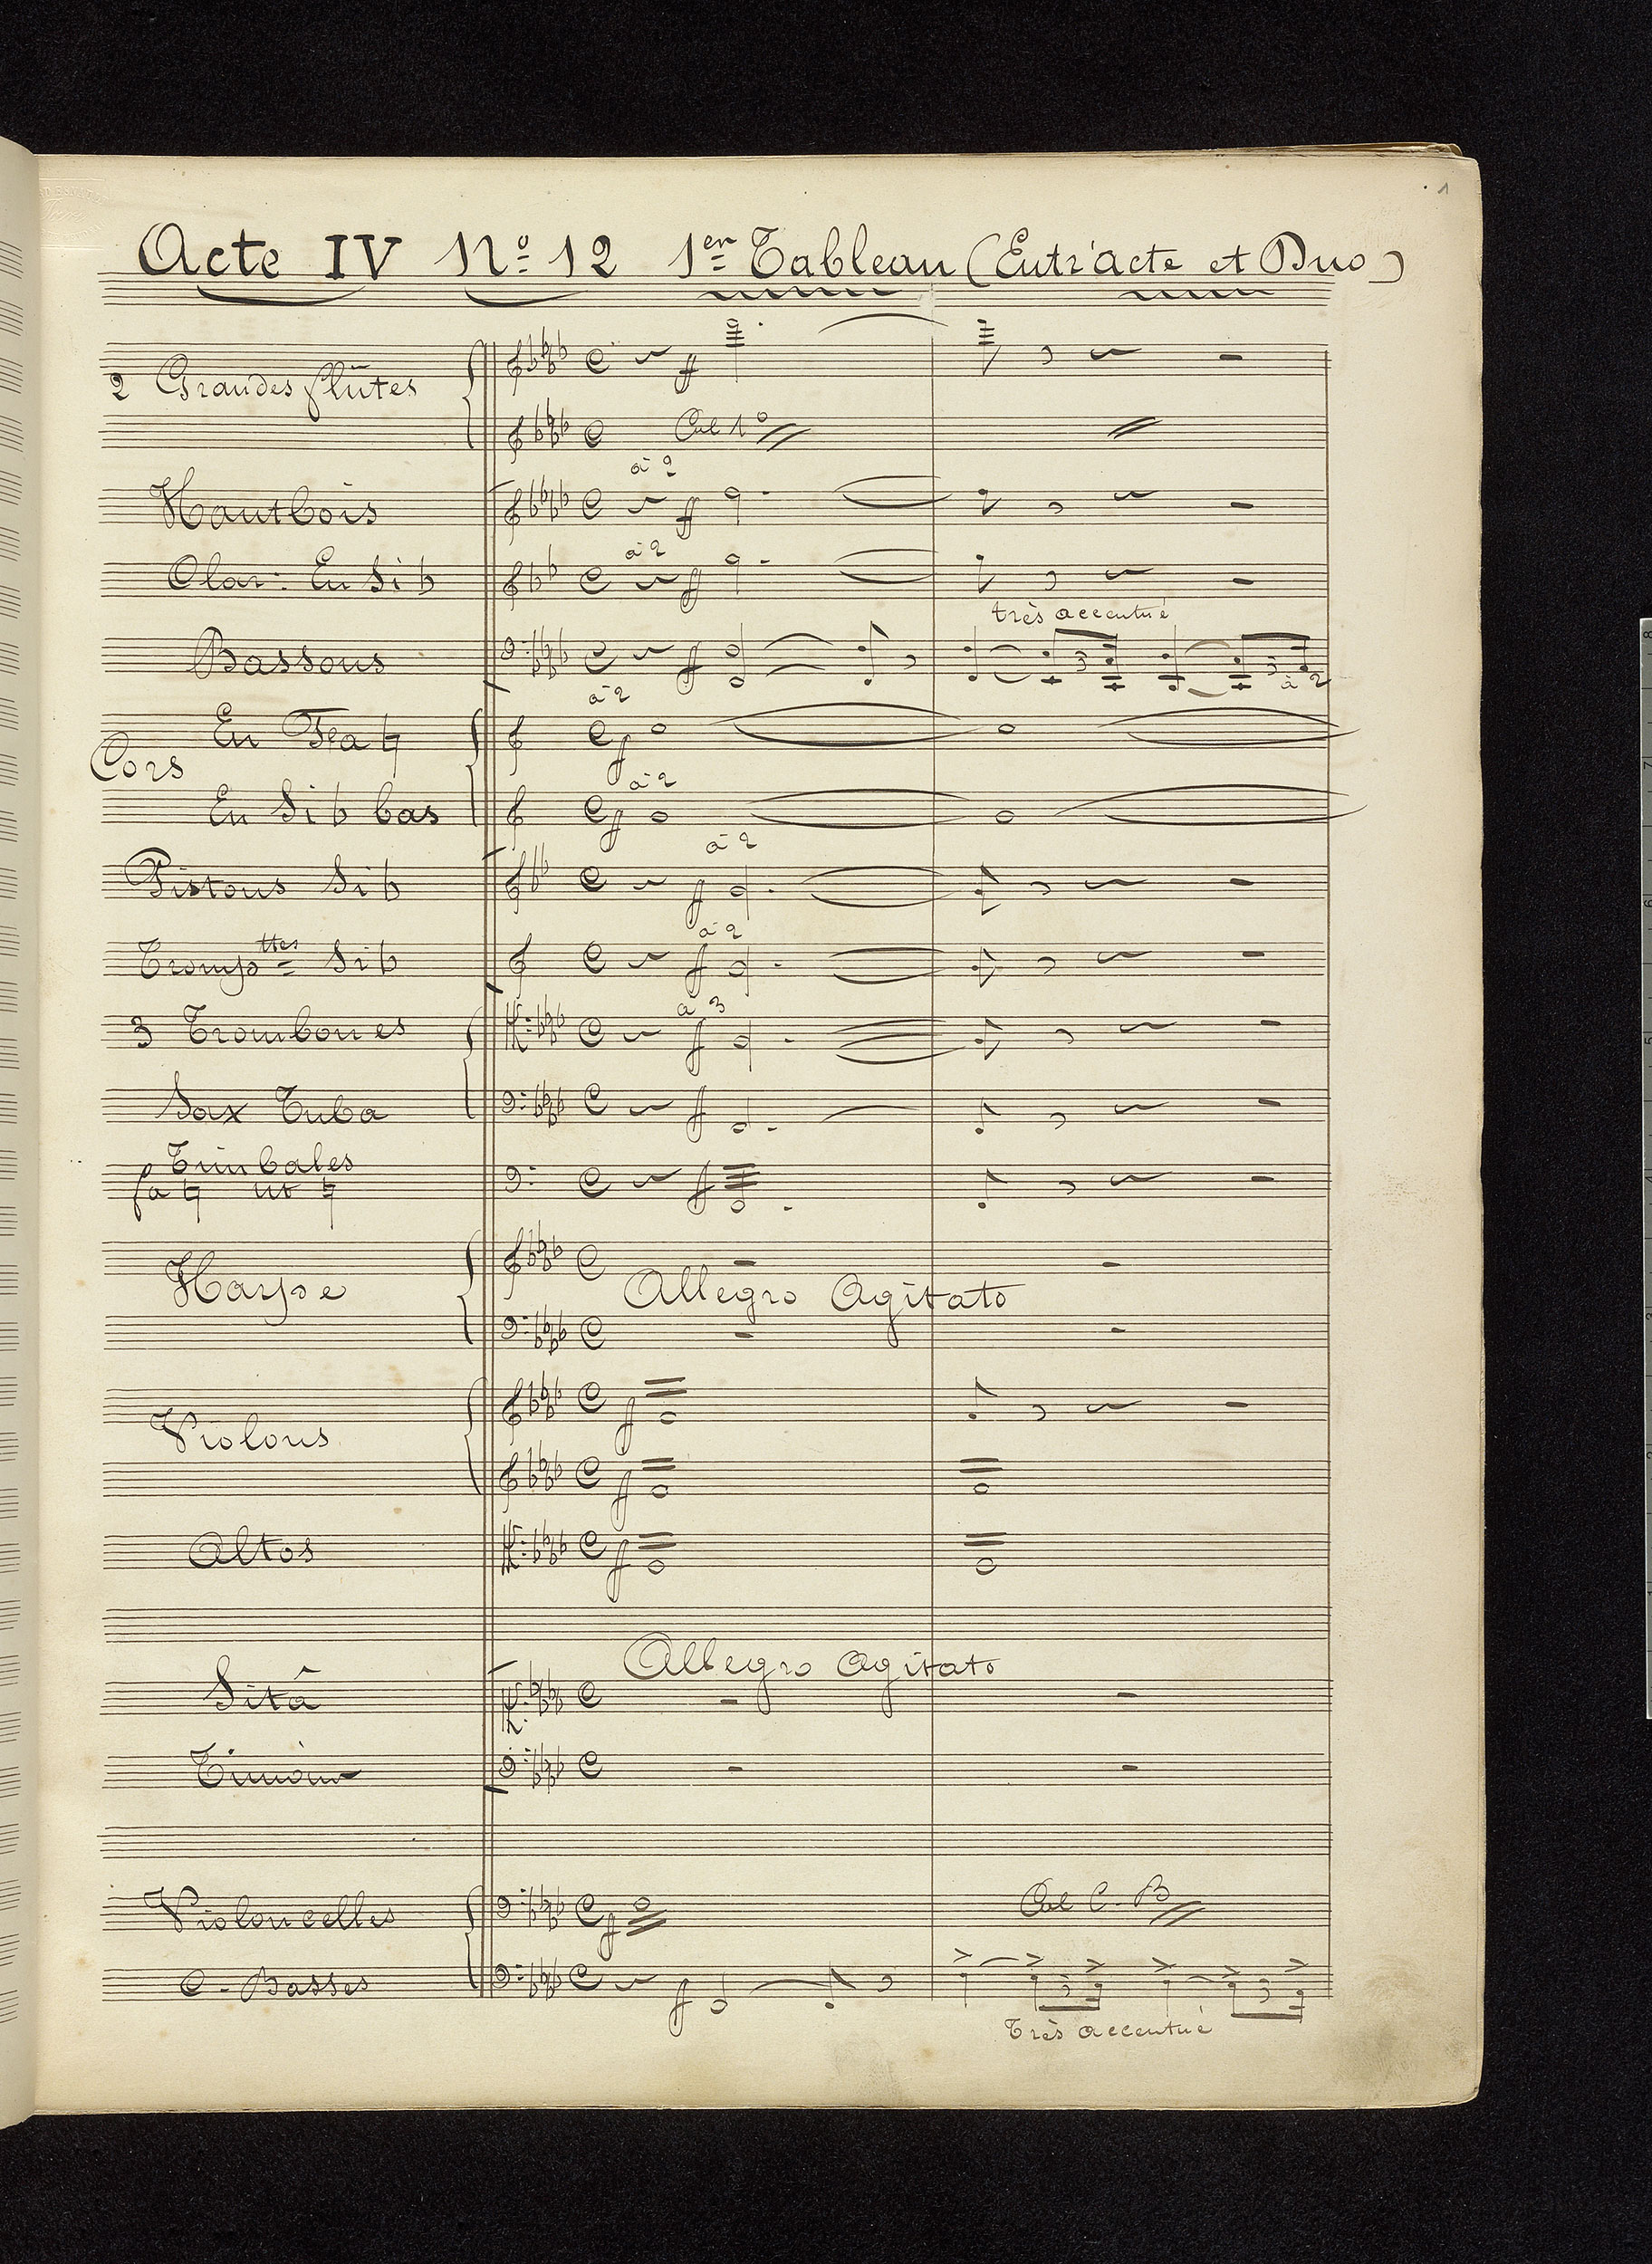 1
Acte IV Nº 12 1er Tableau (Entr'acte et Duo)
2 Grandes flûtes
ff
Col 1º
à 2
Hautbois
ff
à 2
Clar: En Si b
ff
très accentué
Bassons
ff
3
3
à 2
à 2
Cors
En Fa ♮
f
à 2
En Si b bas
f
à 2
Pistons Si b
f
à 2
Tromp ttes Si b
f
à 3
3 Trombones
f
Sax Tuba
f
Timbales
fa ♮ ut ♮
f
Harpe
Allegro Agitato
Violons
f
f
Altos
f
Allegro agitato
Sitâ
Timour
Violoncelles
f
Col C. B
C-Basses
f
3
3
Très accentué